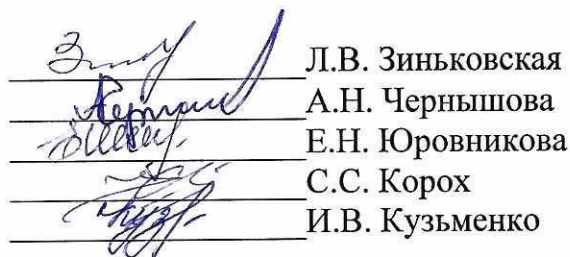 Л.В. Зиньковская
А.Н. Чернышова
Е.Н. Юровникова
С.С. Корох
И.В. Кузьменко